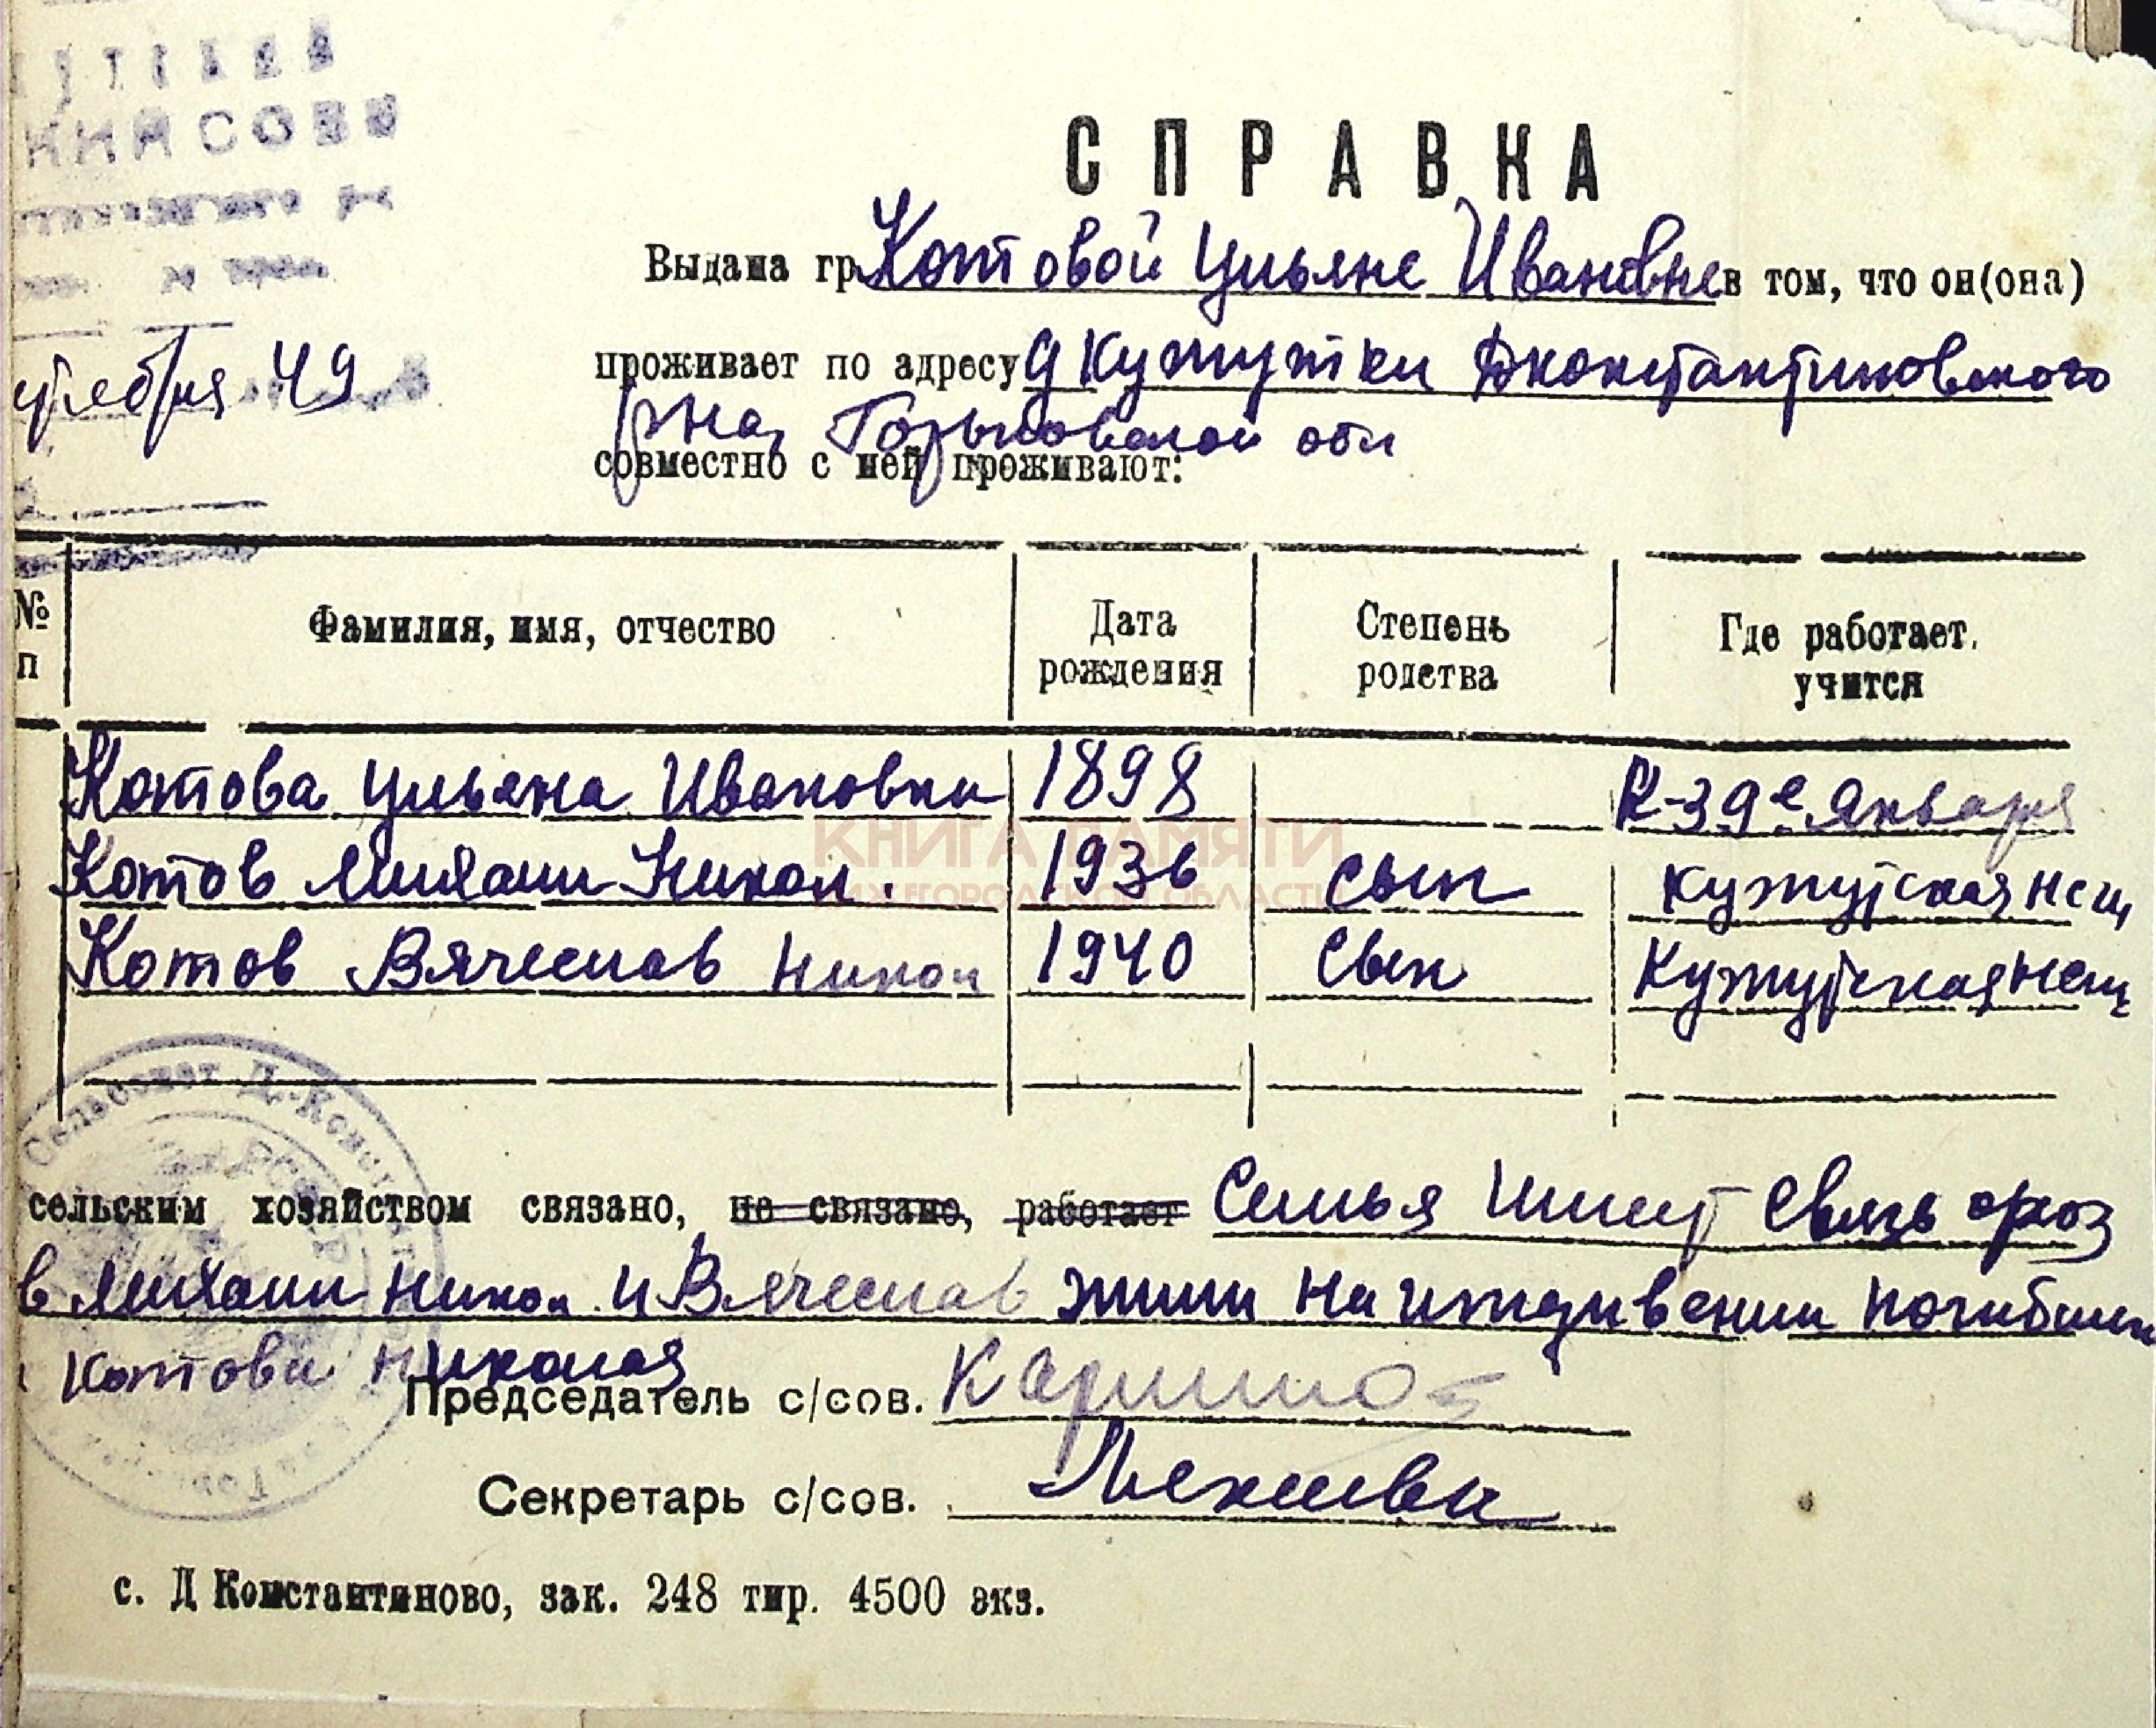 СПРАВКА
Выдана гр. Котовой Ульяне Ивановне в том, что он(она)
проживает по адресу д Кужутки Дконстантиновского
рна, Горьковской обл
совместно с ней проживают:
49
№ п
Фамилия, имя, отчество
Дата рождения
Степень родства
Где работает, учится
Котова Ульяна Ивановна 1898 К-з 9е Января
Котов Михаил Никол. 1936 сын Кужутская нсш
Котов Вячеслав Никол 1940 сын Кужутская нсш
КНИГА ПАМЯТИ
НИЖЕГОРОДСКОЙ ОБЛАСТИ
Сельсовет Д.-Конст
РСФСР
сельским хозяйством связано, не связано, работает Семья имеет связь схоз
в Михаил Никол и Вячеслав жили на иждивении погибшего
Котова Николая
Председатель с/сов.
Секретарь с/сов.
с. Д Константиново, зак. 248 тир. 4500 экз.